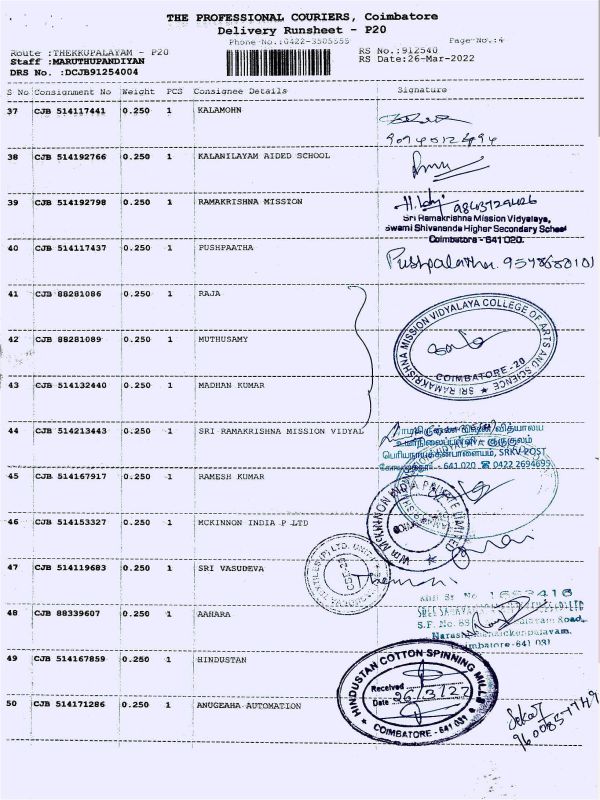 THE PROFESSIONAL COURIERS, Coimbatore
Delivery Runsheet - P20
Phone No.:0422-3505555
Page No.:4
Route :THEKKUPALAYAM - P20
RS No.:912540
Staff :MARUTHUPANDIYAN
RS Date:26-Mar-2022
DRS No. :DCJB91254004
S No Consignment No Weight PCS Consignee Details Signature
37 CJB 514117441 0.250 1 KALAMOHN
38 CJB 514192766 0.250 1 KALANILAYAM AIDED SCHOOL
39 CJB 514192798 0.250 1 RAMAKRISHNA MISSION
Sri Ramakrishna Mission Vidyalaya,
Swami Shivananda Higher Secondary School
Coimbatore - 641 020.
40 CJB 514117437 0.250 1 PUSHPAATHA
Pushpalatha. 9578680101
41 CJB 88281086 0.250 1 RAJA
SRI RAMAKRISHNA MISSION VIDYALAYA COLLEGE OF ARTS AND SCIENCE
COIMBATORE - 20
42 CJB 88281089 0.250 1 MUTHUSAMY
43 CJB 514132440 0.250 1 MADHAN KUMAR
44 CJB 514213443 0.250 1 SRI RAMAKRISHNA MISSION VIDYAL
வித்யாலயா
குருகுலம்
பெரியநாயக்கன்பாளையம், SRKV POST
- 641 020 ☎ 0422 2694695
45 CJB 514167917 0.250 1 RAMESH KUMAR
46 CJB 514153327 0.250 1 MCKINNON INDIA P LTD
MCKINNON INDIA PRIVATE LIMITED
47 CJB 514119683 0.250 1 SRI VASUDEVA
48 CJB 88339607 0.250 1 AAHARA
S.F. No. 88
Road,
Coimbatore-641 031
49 CJB 514167859 0.250 1 HINDUSTAN
HINDUSTAN COTTON SPINNING MILLS
Received
Date 26/3/22
COIMBATORE - 641 031
50 CJB 514171286 0.250 1 ANUGEAHA AUTOMATION